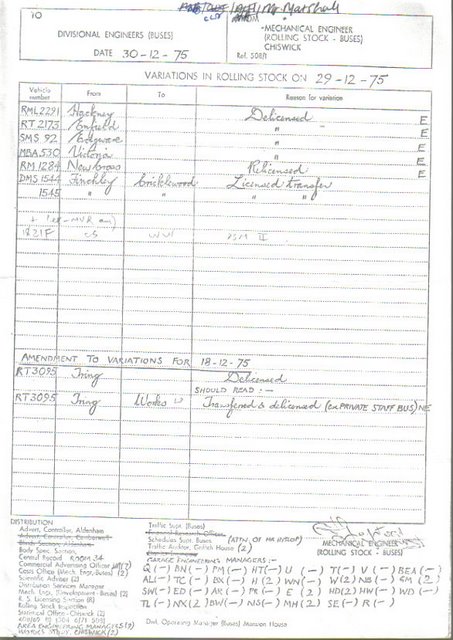 Mr Marshall
TO
DIVISIONAL ENGINEERS (BUSES)
DATE 30-12-75
FROM
MECHANICAL ENGINEER
(ROLLING STOCK - BUSES)
CHISWICK
Ref. 508/1
VARIATIONS IN ROLLING STOCK ON 29-12-75
Vehicle number From To Reason for variation
RML2291 Hackney Delicensed E
RT 2173 Enfield " E
SMS 92 Edgware " E
MBA 530 Victoria " E
RM 1284 New Cross Relicensed E
DMS 1544 Finchley Cricklewood Licensed transfer
1545 " " " "
1821F CS WW
AMENDMENT TO VARIATIONS FOR 18-12-75
RT3095 Tring Delicensed
SHOULD READ :-
RT3095 Tring Works Transferred & delicensed (ex PRIVATE STAFF BUS) NE
DISTRIBUTION
Advert. Controller, Aldenham
Body Spec. Section,
Central Record ROOM 34
Commercial Advertising Officer
Costs Office (Mech. Engr. Buses) (2)
Scientific Adviser (2)
Distribution Services Manager
Mech. Engr. (Development - Based) (2)
R. S. Licensing Section (2)
Rolling Stock Inspection
Statistical Office - Chiswick (2)
AREA ENGINEERING MANAGERS (2)
WORKS STUDY, CHISWICK (2)
Traffic Supt. (Buses)
Schedules Supt. Buses
Traffic Auditor, Griffith House (2)
MECHANICAL ENGINEER
(ROLLING STOCK - BUSES)
GARAGE ENGINEERING MANAGERS :-
Q (-) BN (-) PM (-) HT (-) U (-) T (-) V (-) BEA (-)
AL (-) TC (-) BX (-) H (2) WN (-) W (2) NB (-) SM (2)
SW (-) ED (-) AR (-) PR (-) E (2) HD (2) HW (-) WD (-)
TL (-) NX (2) BW (-) NS (-) MH (2) SE (-) R (-)
Divl. Operating Manager (Buses) Mansion House